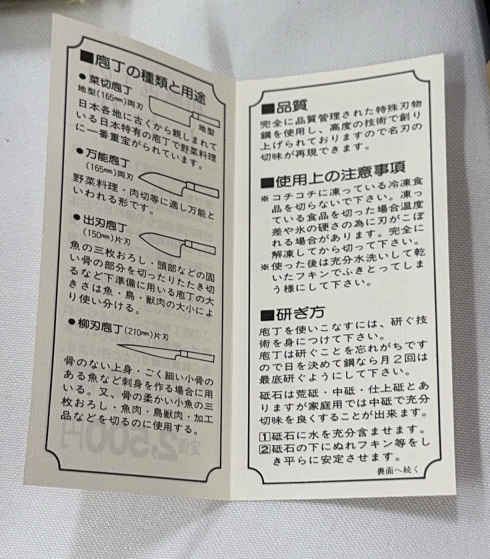 ■庖丁の種類と用途
●菜切庖丁
地型(165㎜)両刃
地型
日本各地に古くから親しまれて
いる日本特有の庖丁で野菜料理
に一番重宝がられています。
●万能庖丁
(165㎜)両刃
野菜料理・肉切等に適し万能と
いわれる形です。
●出刃庖丁
(150㎜)片刃
魚の三枚おろし・頭部などの固
い骨の部分を切ったりたたき切
るなど下準備に用いる庖丁の大
きさは魚・鳥・獣肉の大小によ
り使い分ける。
●柳刃庖丁(210㎜)片刃
骨のない上身・ごく細い小骨の
ある魚など刺身を作る場合に用
いる。又、骨の柔かい小魚の三
枚おろし・魚肉・鳥獣肉・加工
品などを切るのに使用する。
■品質
完全に品質管理された特殊刃物
鋼を使用し、高度の技術で創り
上げられておりますので名刃の
切味が再現できます。
■使用上の注意事項
※コチコチに凍っている冷凍食
品を切らないで下さい。凍っ
ている食品を切った場合温度
差や氷の硬さの為に刃がこぼ
れる場合があります。完全に
解凍してから切って下さい。
※使った後は充分水洗いして乾
いたフキンでふきとってしま
う様にして下さい。
■研ぎ方
庖丁を使いこなすには、研ぐ技
術を身につけて下さい。
庖丁は研ぐことを忘れがちです
ので日を決めて鋼なら月2回は
最底研ぐようにして下さい。
砥石は荒砥・中砥・仕上砥とあ
りますが家庭用では中砥で充分
切味を良くすることが出来ます。
1砥石に水を充分含ませます。
2砥石の下にぬれフキン等をし
き平らに安定させます。
裏面へ続く